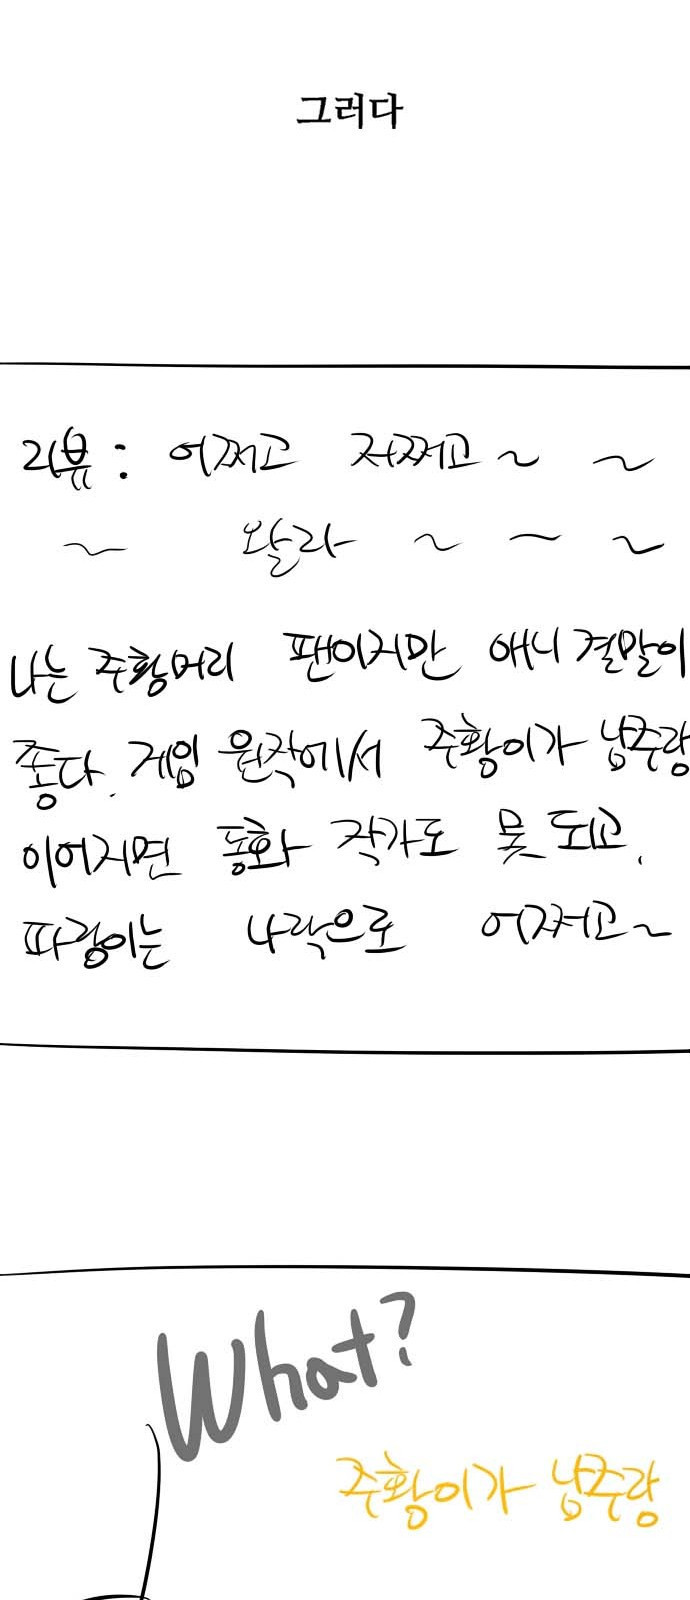 그러다
리뷰: 어쩌고 저쩌고~ ~
~ 왈라 ~ ~ ~
나는 주황머리 팬이지만 애니 결말이
좋다. 게임 원작에서 주황이가 남주랑
이어지면 동화 작가도 못 되고.
파랑이는 나락으로 어쩌고~
What?
주황이가 남주랑